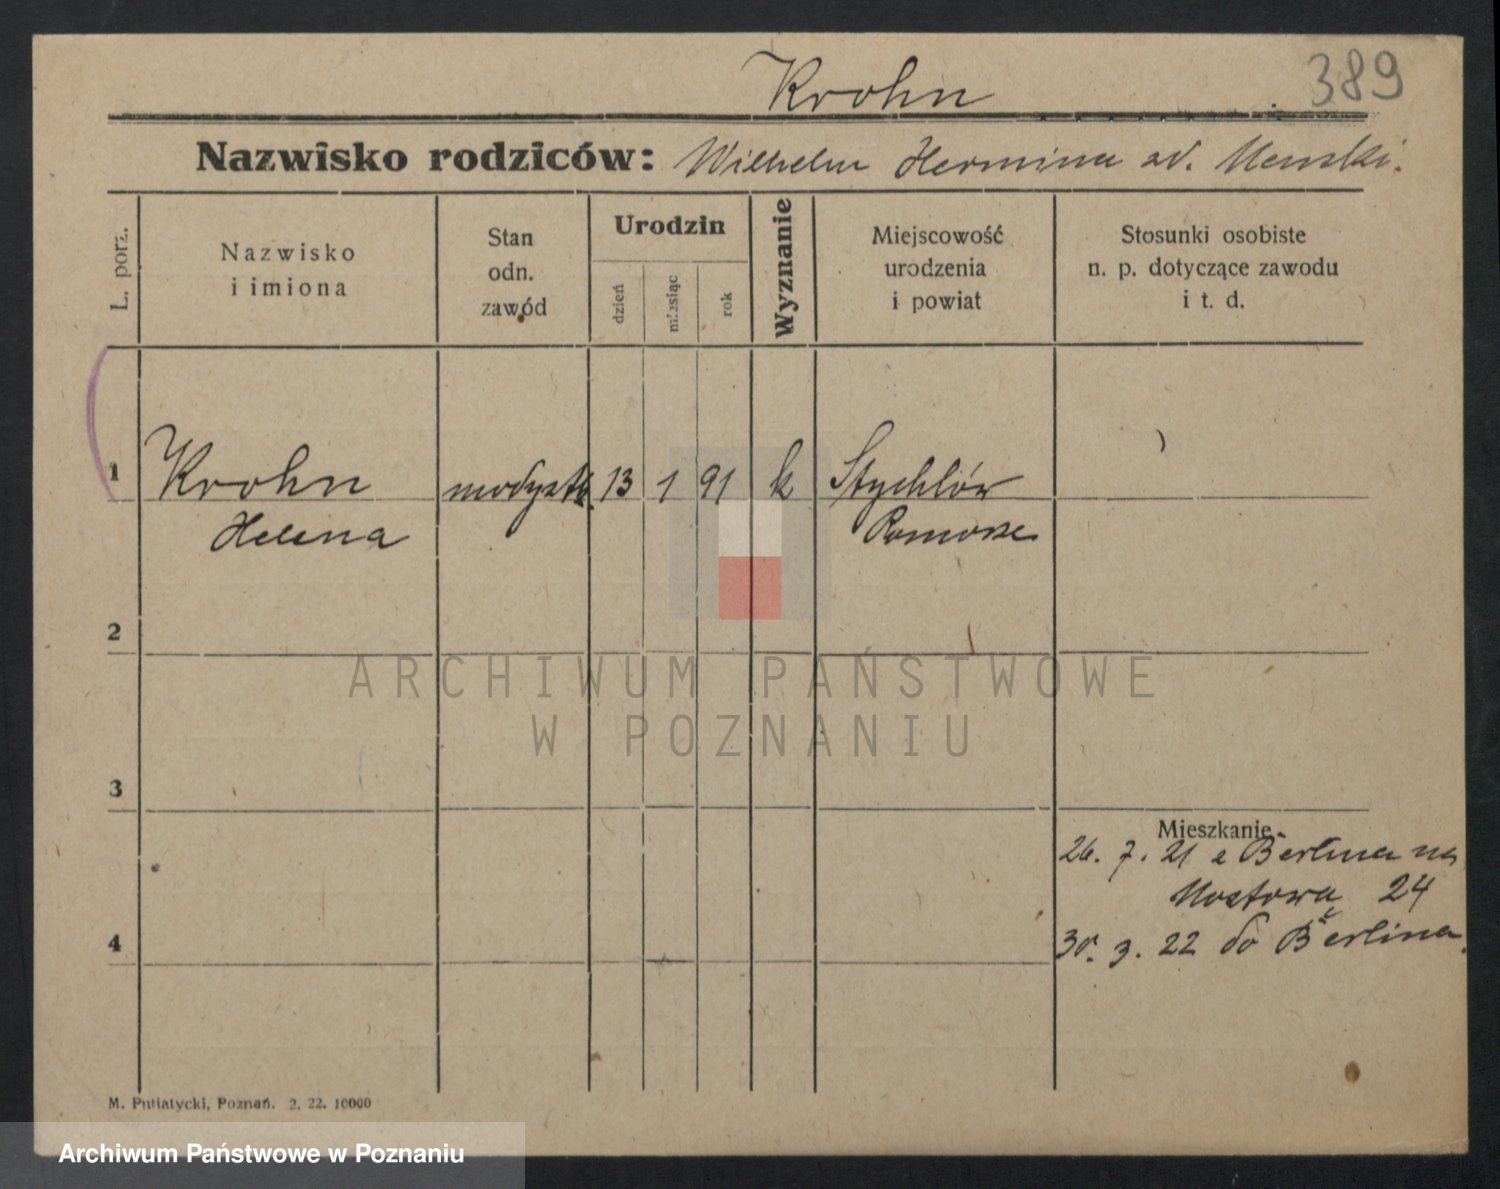 Krohn
389
Nazwisko rodziców: Wilhelm Hermina zd. Menski.
L. porz.
Nazwisko
i imiona
Stan
odn.
zawód
Urodzin
dzień
miesiąc
rok
Wyznanie
Miejscowość
urodzenia
i powiat
Stosunki osobiste
n. p. dotyczące zawodu
i t. d.
1
Krohn modystk. 13 1 91 k Stychlów
Helena Pomorze
2
ARCHIWUM PAŃSTWOWE
W POZNANIU
3
Mieszkanie
26. 7. 21 z Berlina na
Mostową 24
4
30. 3. 22 do Berlina.
M. Putiatycki, Poznań. 2. 22. 10000
Archiwum Państwowe w Poznaniu